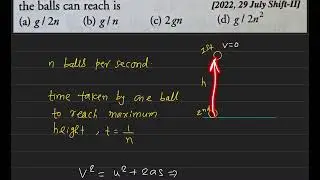 the balls can reach is [2022, 29 July Shift-II]
(a) g / 2n (b) g / n (c) 2 gn (d) g / 2n²
1st v=0
n balls per second.
h
time taken by one ball
to reach maximum
height, t = 1/n
2nd
v² = u² + 2as ⇒